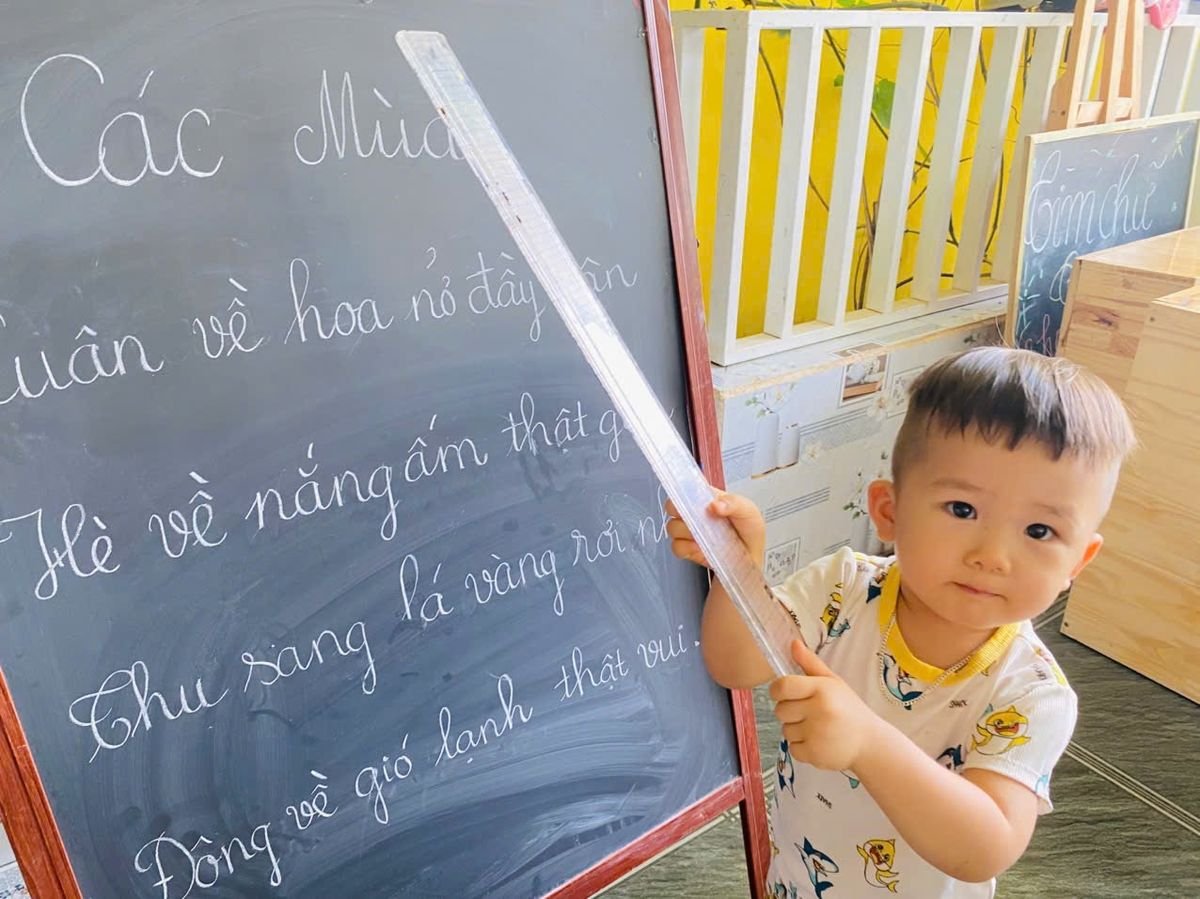 Các Mùa
Xuân về hoa nở đầy
Hè về nắng ấm thật
Thu sang lá vàng rơi
Đông về gió lạnh thật vui.
Tìm chữ